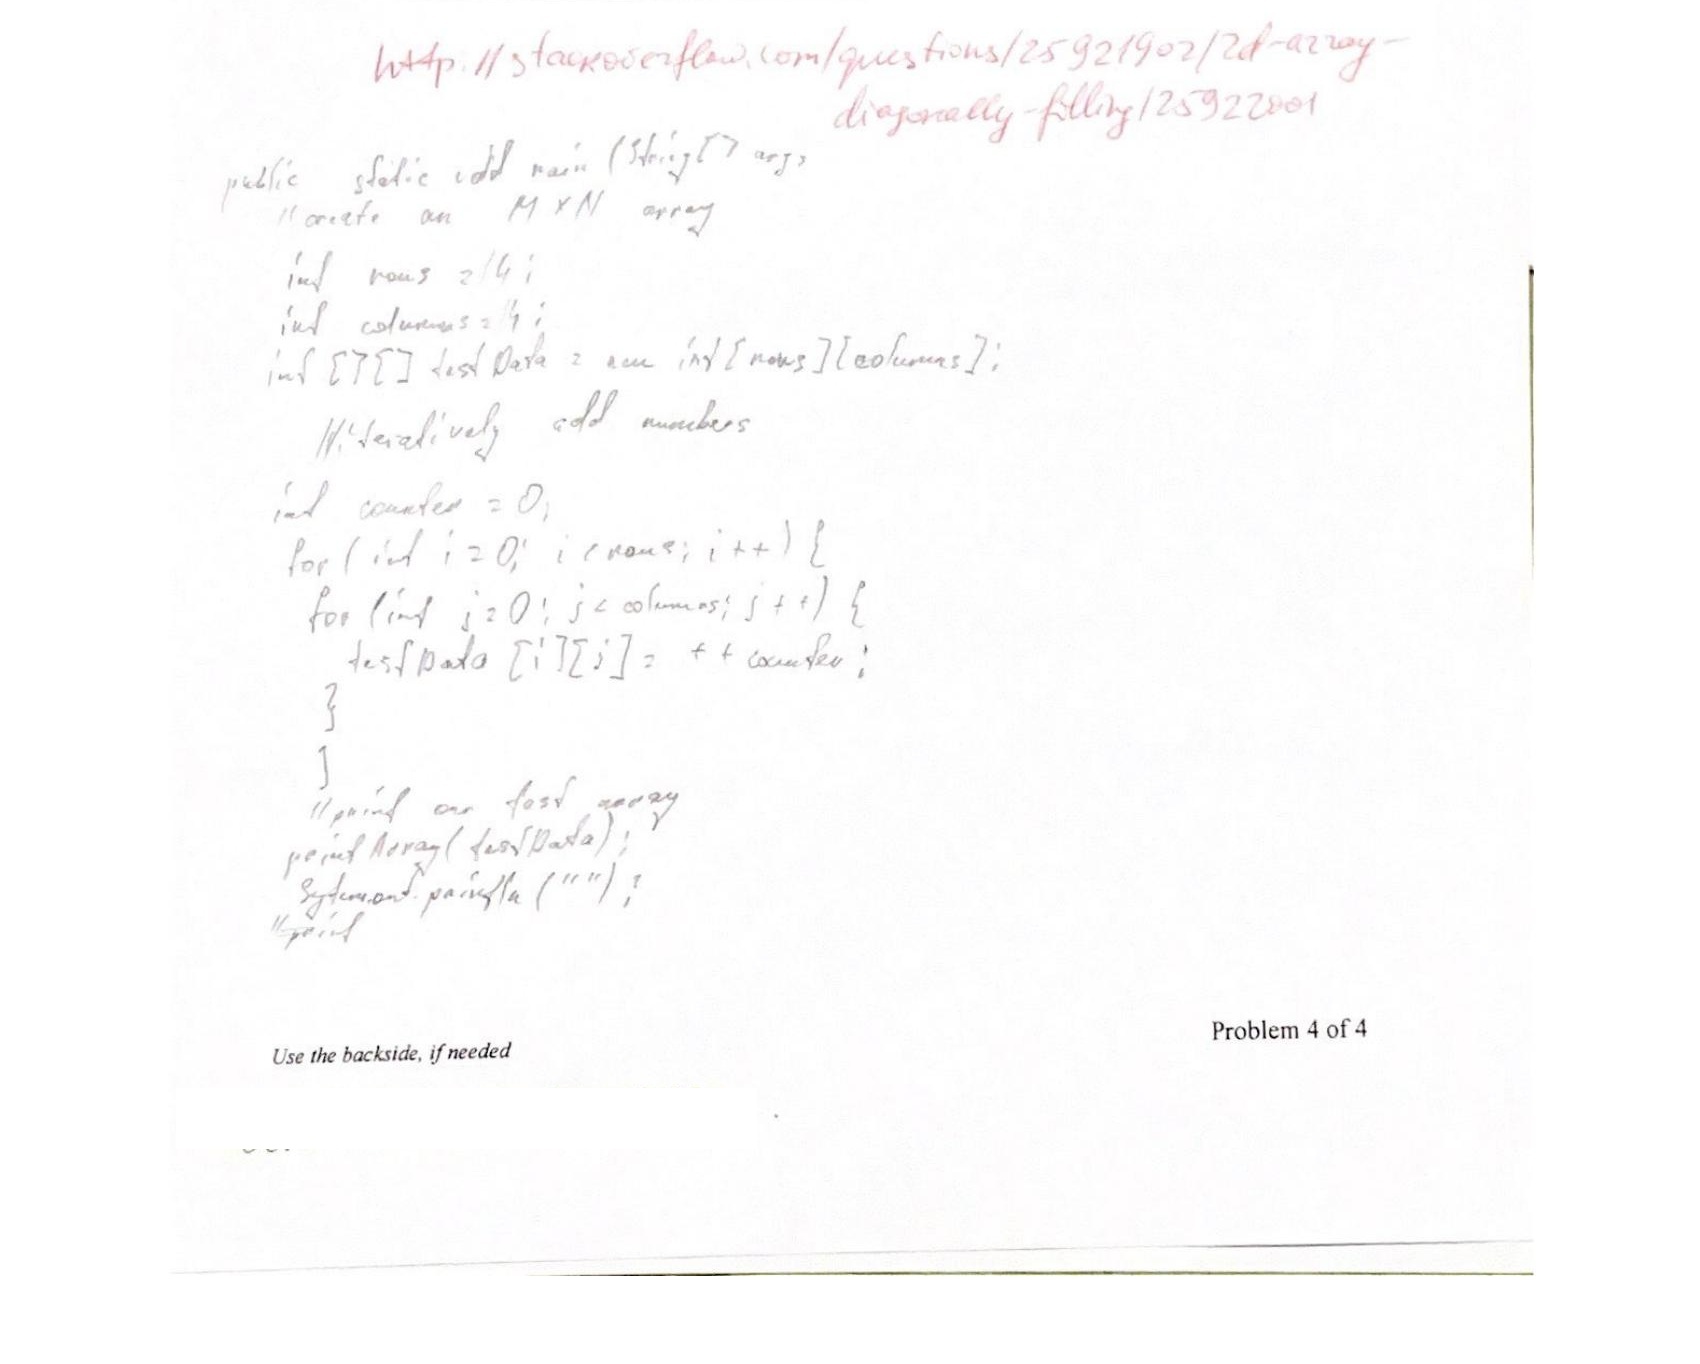 http://stackoverflow.com/questions/25921902/2d-array-
diagonally-filling/25922001
public static void main (String[] args
//create an M x N array
int rows = 4;
int columns = 4;
int [][] testData = new int [rows][columns];
//iteratively add numbers
int counter = 0;
for (int i = 0; i < rows; i++) {
for (int j = 0; j < columns; j++) {
testData [i][j] = ++counter;
}
]
//print our test array
printArray( testData);
System.out.println ("");
//print
Use the backside, if needed
Problem 4 of 4